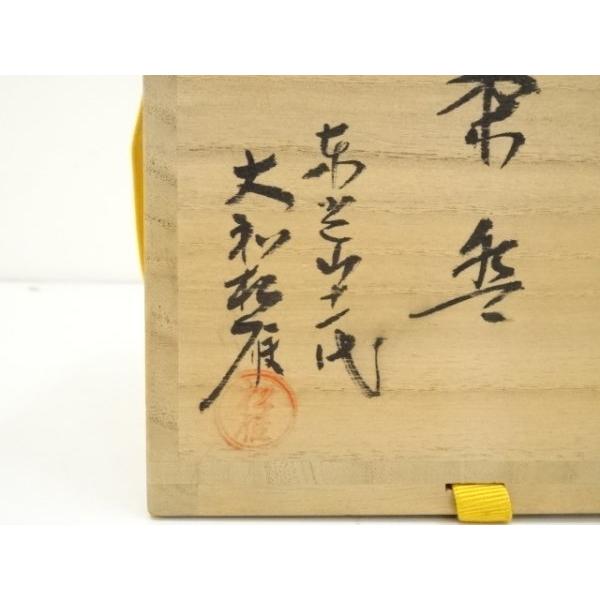 盌
東山十一代
大和松雁
松雁